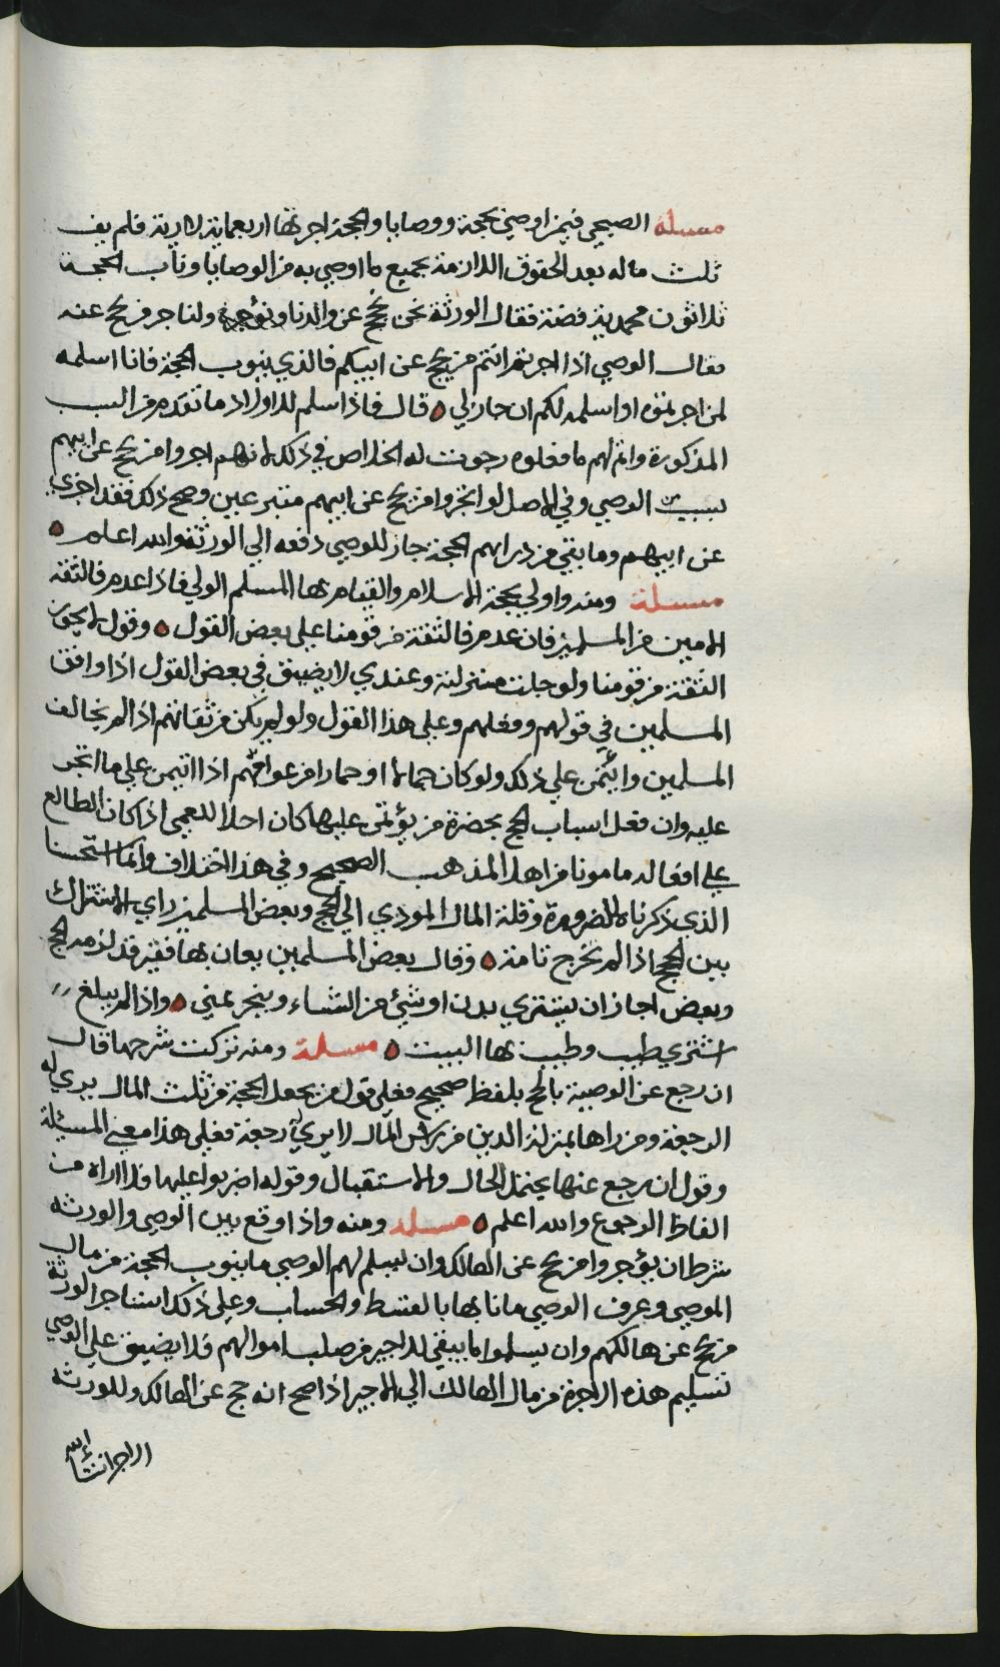 مسئلة الصبحي فيمن اوصى بحجة ووصايا والحجة اجرتها اربعماية لارية فلم يف
ثلث ماله بعد الحقوق اللازمة بجميع ما اوصى به من الوصايا وناب الحجة
ثلاثون محمدية فضة فقال الورثة نحن نحج عن والدنا ونؤجره ولنا جر من يحج عنه
فقال الوصي اذا اجرتم انتم من يحج عن ابيكم فالذي ينوب الحجة فانا اسلمه
لمن اجرتموه او اسلمه لكم ان جاز لي قال فاذا سلم للاولاد ما تقدم من السبب
المذكورة واتم لهم ما فعلوه رجوت له الخلاص في ذلك لانهم اجروا من يحج عن ابيهم
بسبب الوصي وفي الاصل لو اتجروا من يحج عن ابيهم متبرعين وصح ذلك فقد اجزى
عن ابيهم وما بقي من دراهم الحجة جاز للوصي دفعه الى الورثة والله اعلم
مسئلة ومنه واولى بحجة الاسلام والقيام بها المسلم الولي فاذا عدم فالثقة
الامين من المسلمين فان عدم فالثقة من قومنا على بعض القول وقول لا يجوز
الثقة من قومنا ولو جلت منزلته وعندي لا يضيق في بعض القول اذا وافق
المسلمين في قولهم وفعلهم وعلى هذا القول ولو لم يكن من ثقاتهم اذا لم يخالف
المسلمين وائتمن على ذلك ولو كان حمالا او حمارا فزعوا انهم اذا اتيمن على ما اتجر
عليه وان فعل اسباب الحج بحضرة من يؤتمن عليها كان احلا للعمى اذا كان الطالع
على افعاله مامونا من اهل المذهب الصحيح وفي هذا اختلاف وانما استحسنا
الذي ذكرناه للضرورة وقلة المال المودي الى الحج وبعض المسلمين راي الاشتراك
بين الحج اذا لم تخرج تامة وقال بعض المسلمين يعان بها فقير قد لزمه الحج
وبعض اجاز ان يشتري بدن او شيء من الشاء وينحر بمنى واذا لم يبلغ
اشتري طيب وطيب بها البيت مسئلة ومنه تركت شرحها قال
ان رجع عن الوصية بالحج بلفظ صحيح فعلى قول من يجعل الحجة من ثلث المال يرى له
الرجعة ومن راها بمنزلة الدين من راس المال لا يرى له رجعة فعلى هذا معنى المسئلة
وقول ان رجع عنها يحتمل الحال والاستقبال وقوله اضربوا عليها فلا اراه من
الفاظ الرجوع والله اعلم مسئلة ومنه واذا وقع بين الوصي والورثة
شرط ان يؤجروا من يحج عن الهالك وان يسلم لهم الوصي ما ينوب الحجة من مال
الموصي وعرف الوصي ما نابها بالقسط والحساب وعلى ذلك استاجر الورثة
من يحج عن هالكهم وان يسلموا ما يبقى للاجير من صلب اموالهم فلا يضيق على الوصي
تسليم هذه الاجرة من مال الهالك الى الاجير اذا صح انه حج عن الهالك وللورثة
الاجر ان شاء الله